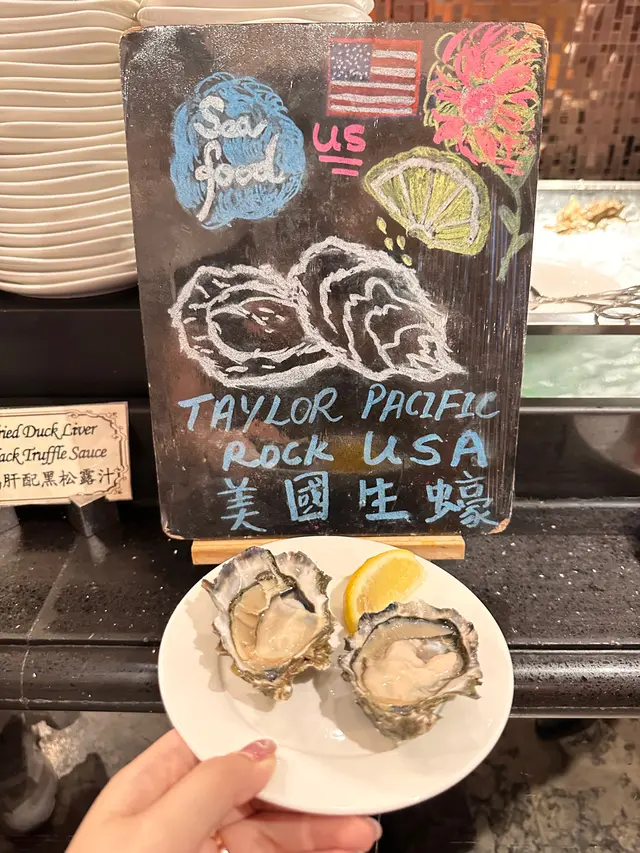 Sea
food
US
TAYLOR PACIFIC
ROCK USA
美國生蠔
ried Duck Liver
ack Truffle Sauce
肝配黑松露汁